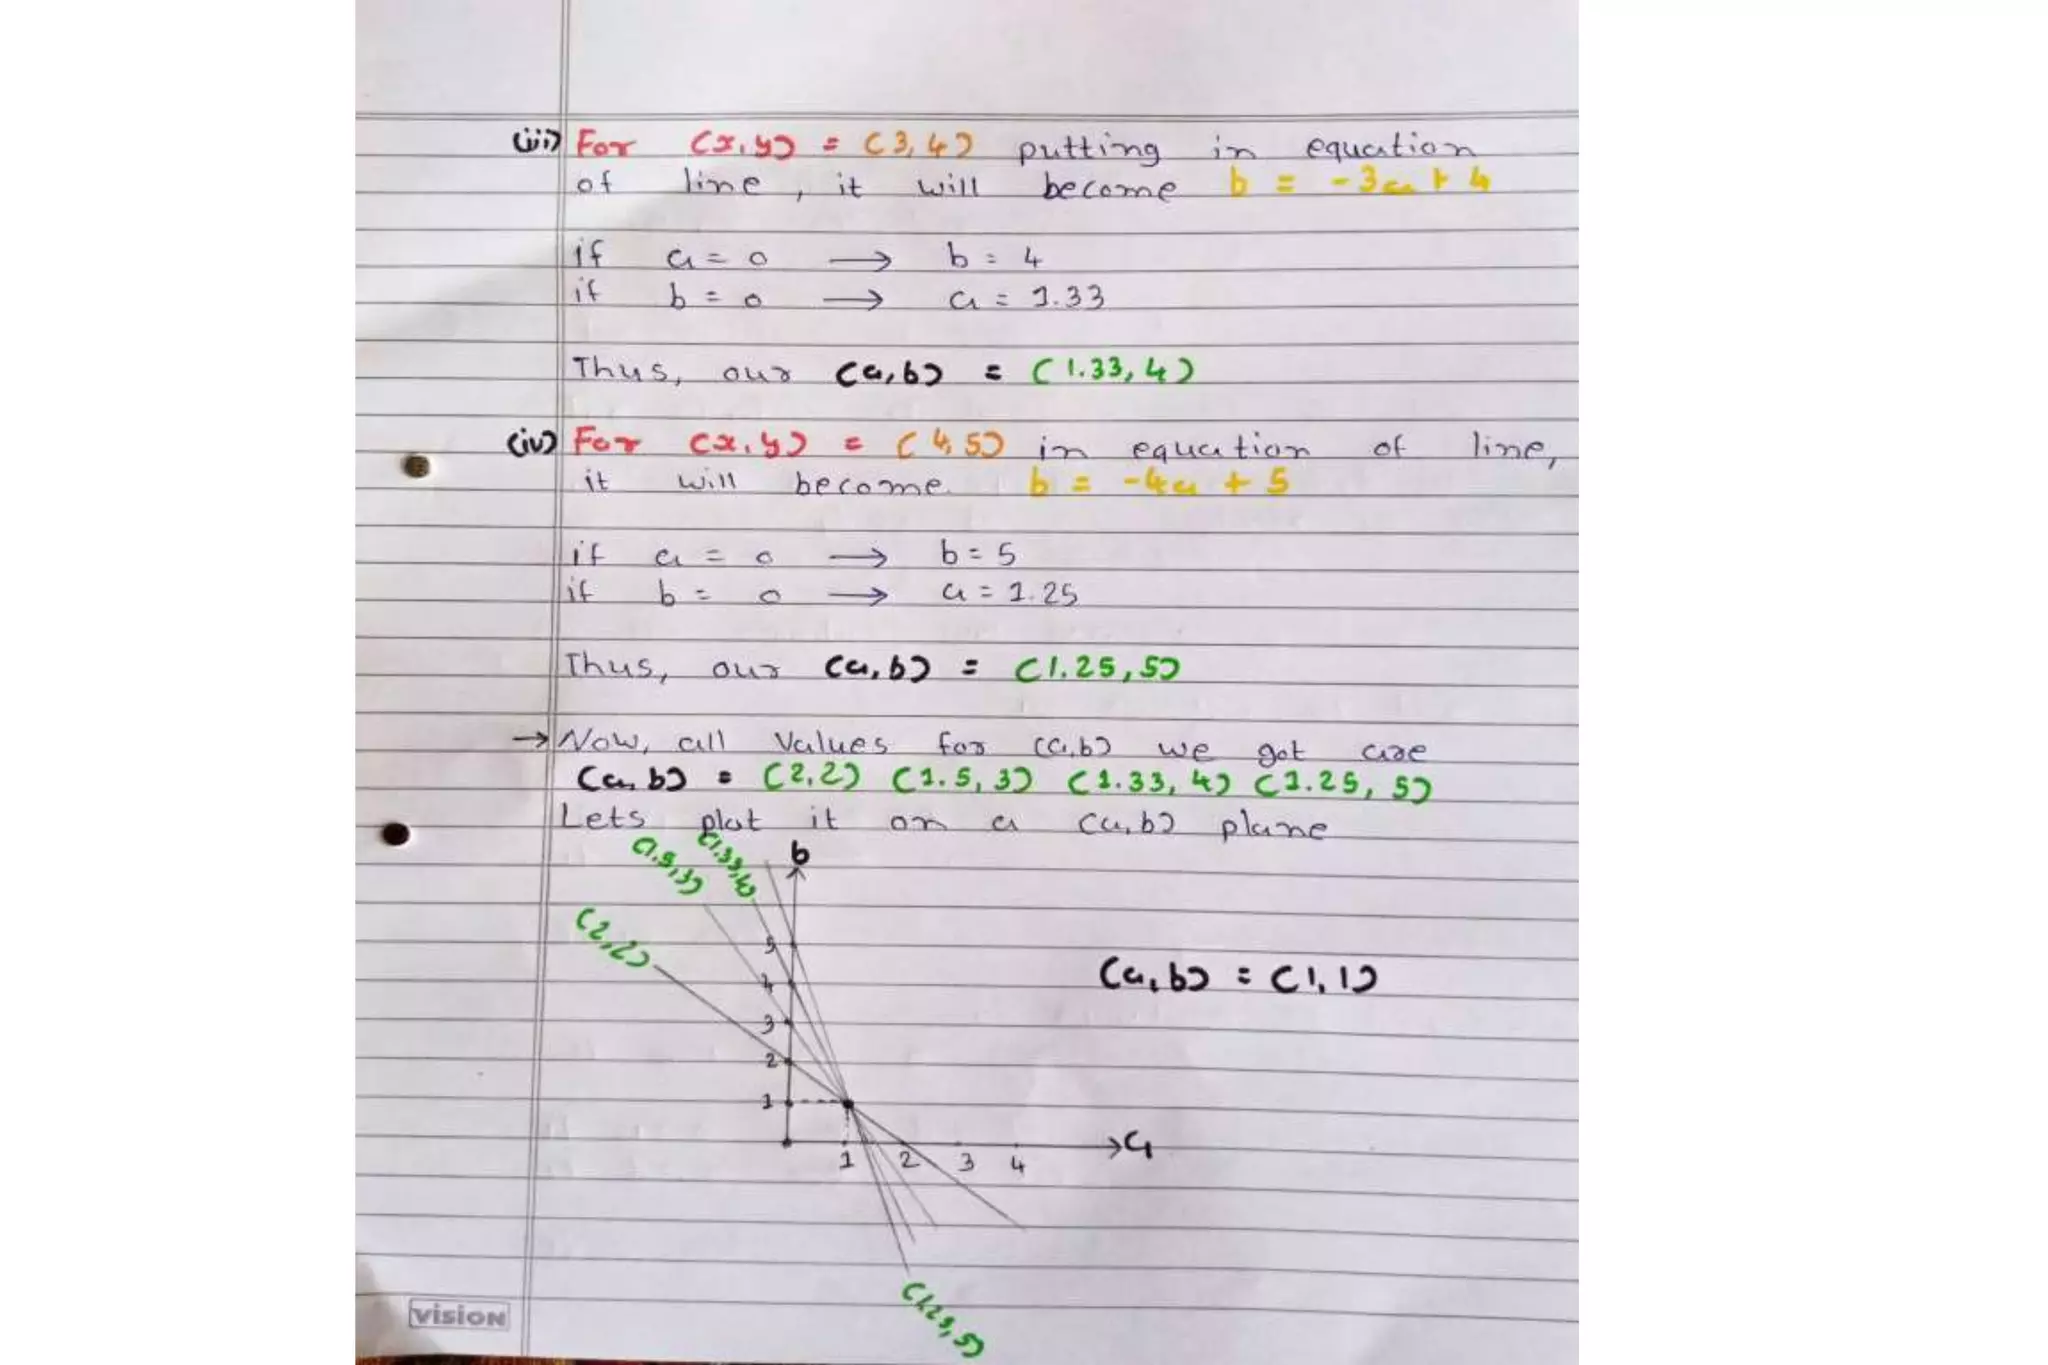 (iii) For (x,y) = (3,4) putting in equation
of line, it will become b = -3a + 4
if a = 0 → b = 4
if b = 0 → a = 1.33
Thus, our (a,b) = (1.33,4)
(iv) For (x,y) = (4,5) in equation of line,
it will become b = -4a + 5
if a = 0 → b = 5
if b = 0 → a = 1.25
Thus, our (a,b) = (1.25,5)
→ Now, all values for (a,b) we got are
(a,b) = (2,2) (1.5,3) (1.33,4) (1.25,5)
Lets plot it on a (a,b) plane
(1.5,3) (1.33,4) b
(2,2)
5
4
(a,b) = (1,1)
3
2
1
a
1 2 3 4
(1.25,5)
vision